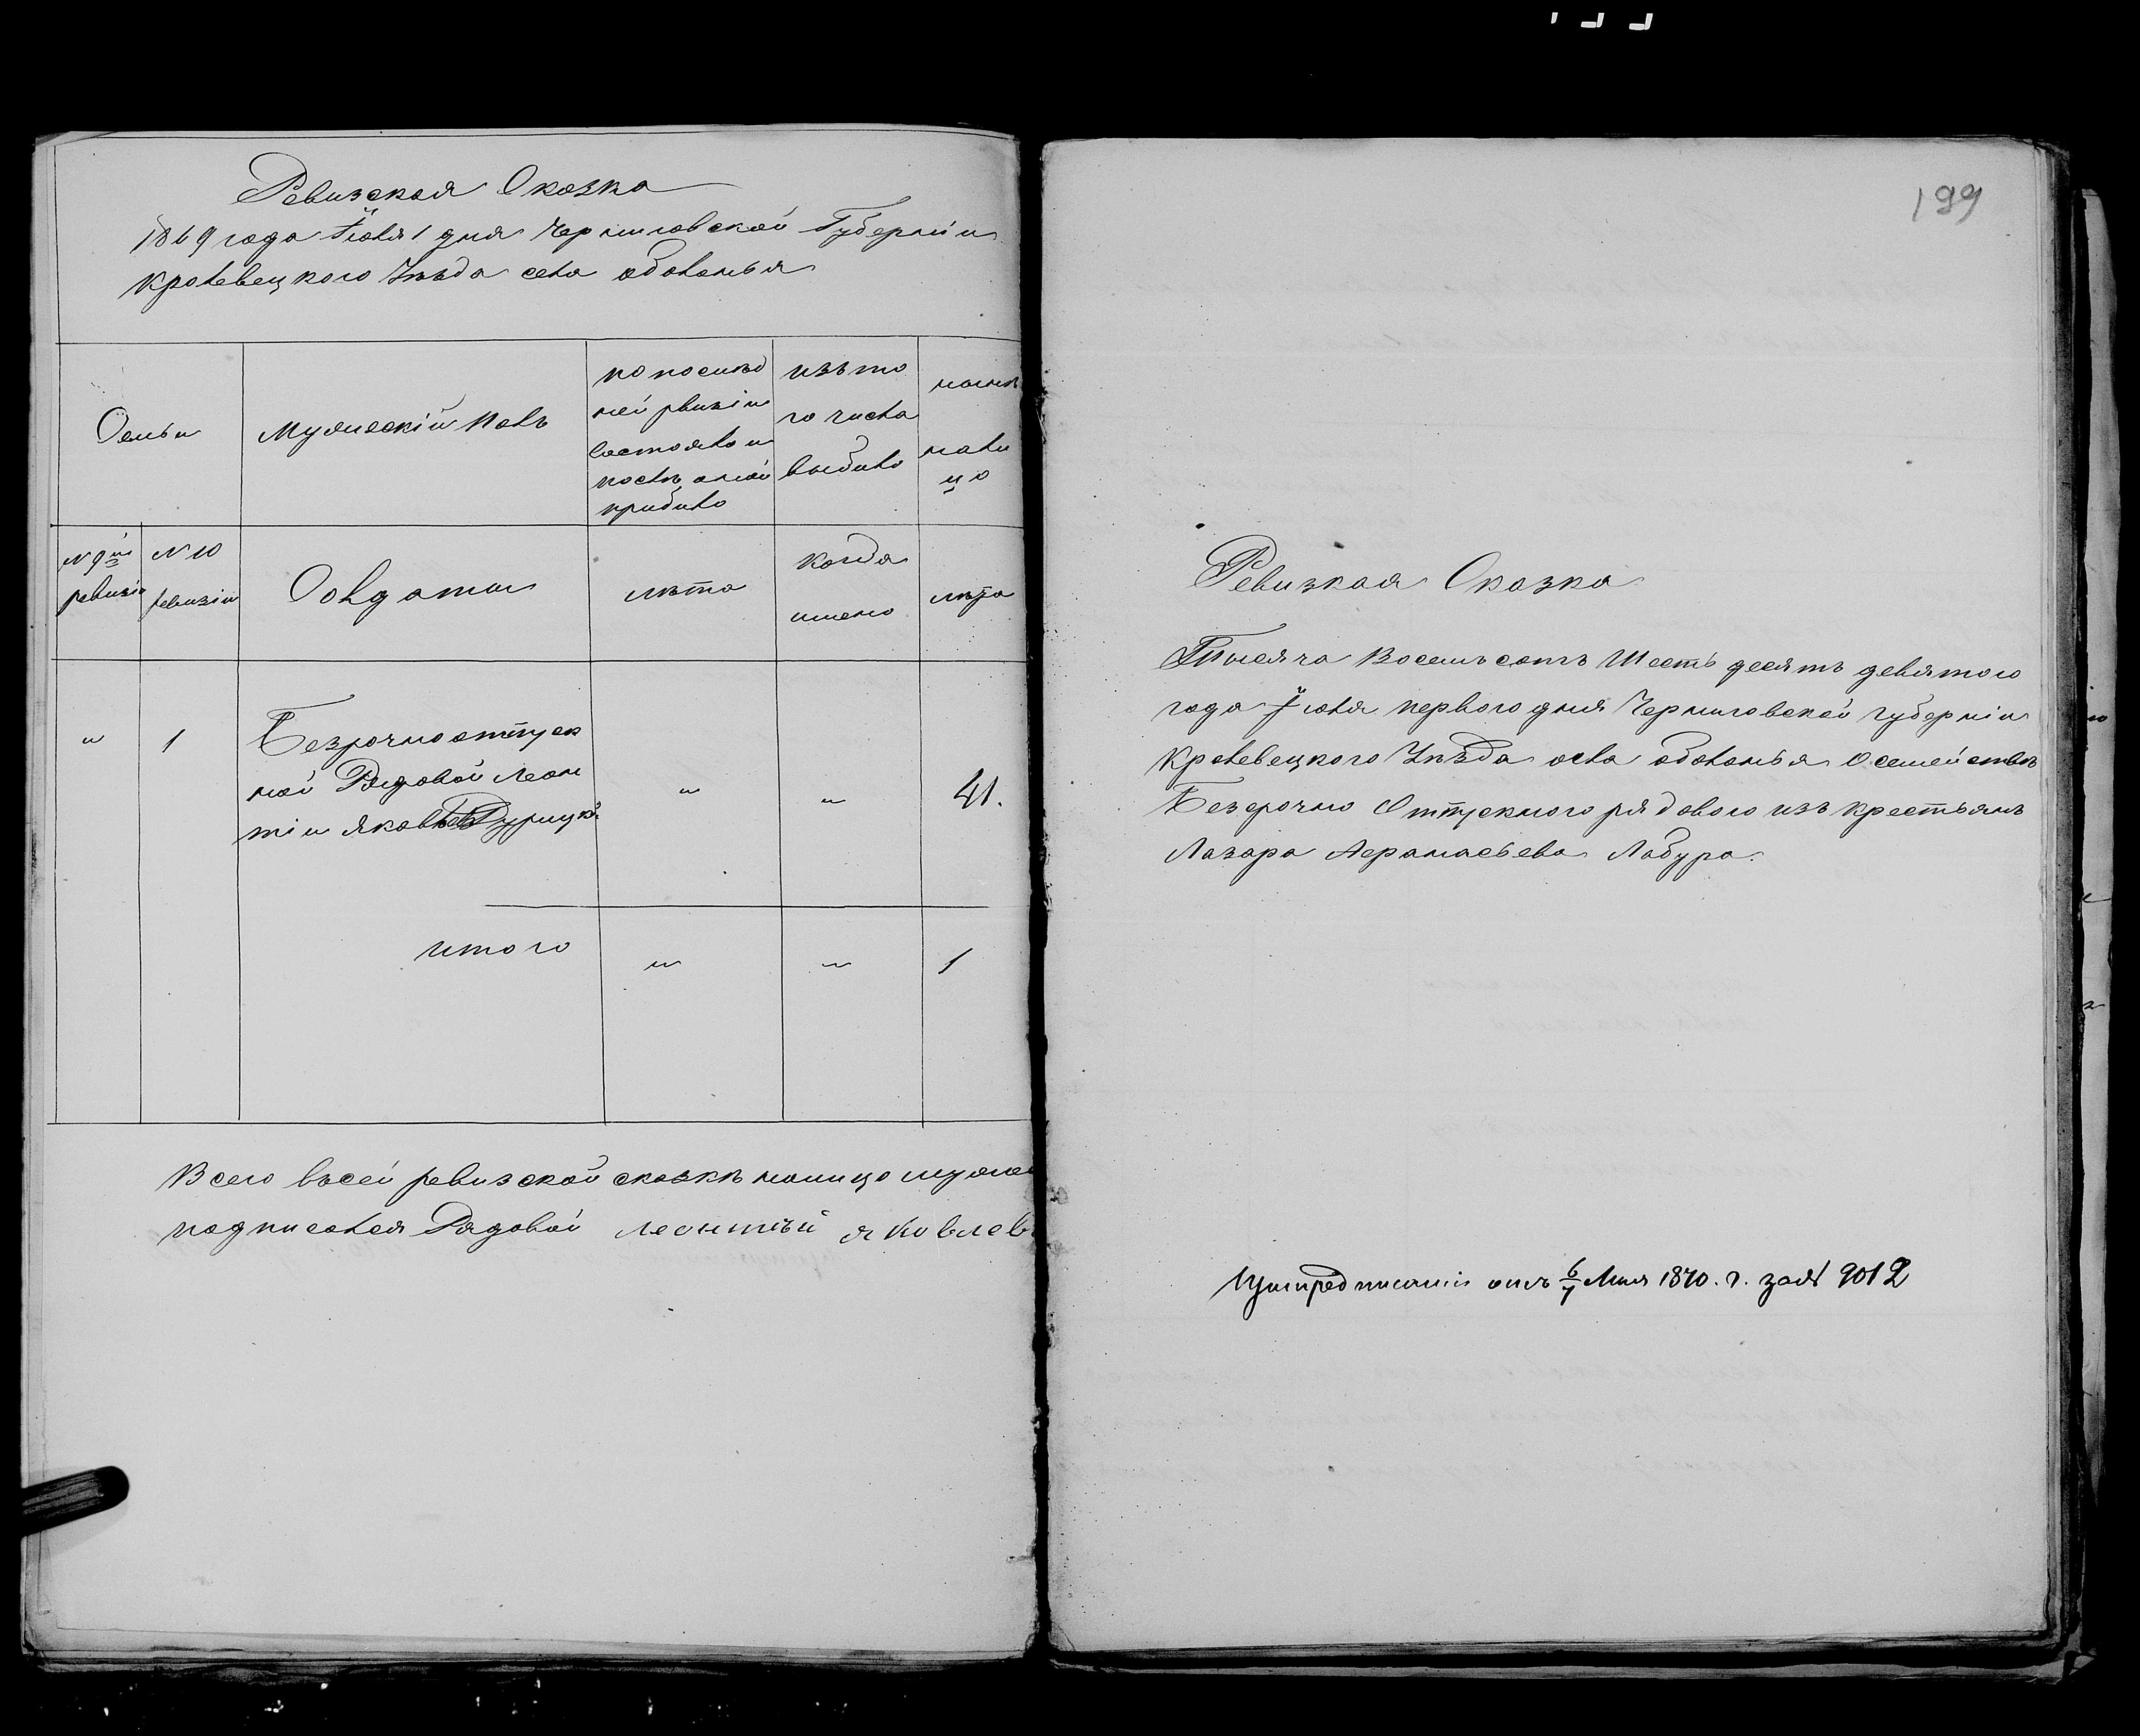 Ревизская Сказка
1869 года Іюля 1 дня Черниговской Губерніи
Кролевецкого Уѣзда села ободонья
Семьи
Мужескій Полъ
по послѣд
ней рвизіи
состояло и
послѣ оной
прибыло
изъ то
го числа
выбыло
нынѣ
нали
цо
№ 9й
ревизіи
№ 10
ревизіи
Солдаты
лѣта
когда
имено
лѣта
"
1
Безрочноотпуск
ной Рядовой Леон
тіи Яковлевъ
"
"
41.
итого
"
"
1
Всего въсей ревизской сказкѣ налицо муже
подписался Рядовой леонтъй яковлев
199
Ревизкая Сказка
Тысяча Восемьсотъ Шесть десять девятого
года Іюля первого дня Черниговской губерніи
Кролевецкого Уѣзда села ободонья Осемействѣ
Безсрочно Отпускного рядового изъ крестьянъ
Лазара Афанасьева Лабура.
отъ 6/7 Мая 1870. г. за № 9012